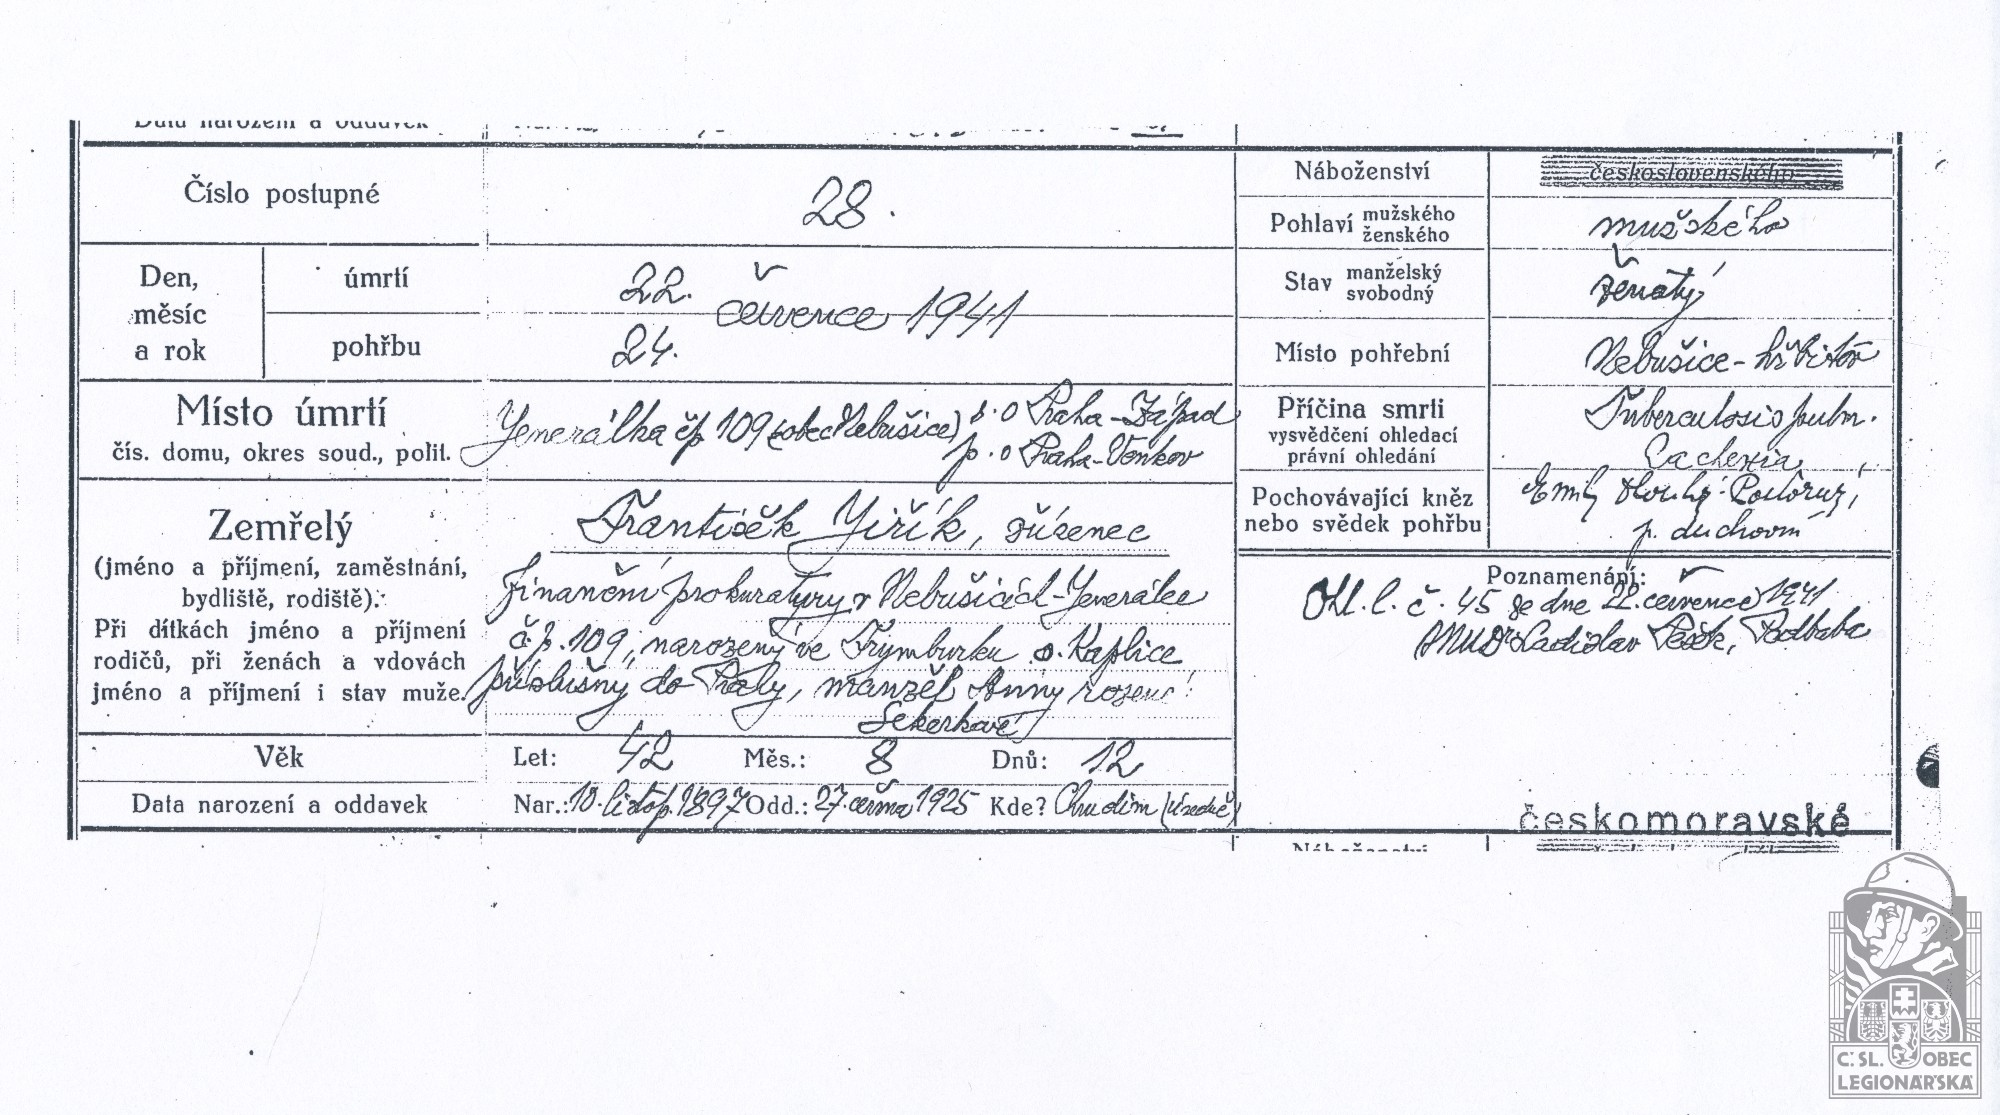 Data narození a oddavek
Číslo postupné
28.
Den,
měsíc
a rok
úmrtí
pohřbu
22.
července 1941
24.
Místo úmrtí
čís. domu, okres soud., polit.
Jenerálka čp 109 (obec Nebušice) s. o Praha-Západ
p. o Praha-Venkov
Zemřelý
(jméno a příjmení, zaměstnání,
bydliště, rodiště).
Při dítkách jméno a příjmení
rodičů, při ženách a vdovách
jméno a příjmení i stav muže.
František Jiřík, zřízenec
finanční prokuratury v Nebušicích-Jenerálce
čp. 109, narozený ve Trymburku o. Kaplice
příslušný do Prahy, manžel Anny rozené
Sekerkové
Věk
Let: 42 Měs.: 8 Dnů: 12
Data narození a oddavek
Nar.: 10. listop. 1897 Odd.: 27. června 1925 Kde? Chrudim
Náboženství
československého
Pohlaví mužského
ženského
mužského
Stav manželský
svobodný
ženatý
Místo pohřební
Nebušice-hřbitov
Příčina smrti
vysvědčení ohledací
právní ohledání
Tuberculosis pulm.
Cachexia
Pochovávající kněz
nebo svědek pohřbu
Emil Dlouhý-Pokorný,
p. duchovní
Poznamenání:
Ohl. l. č. 45 ze dne 22. července 1941
MUDr Ladislav Pešek, Podbaba
českomoravské
Náboženství
Č. SL. OBEC
LEGIONÁŘSKÁ